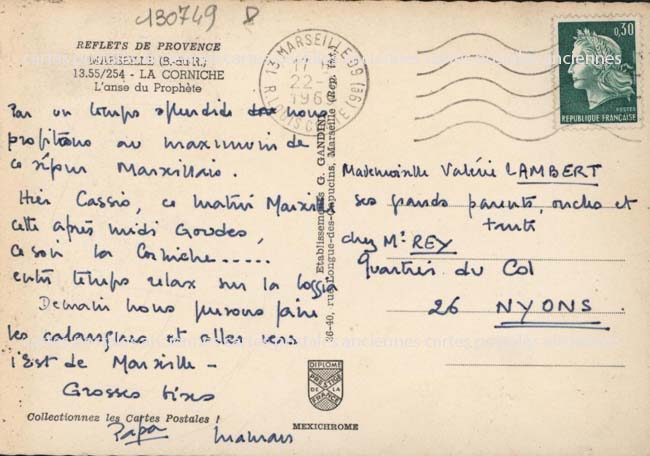 130749
REFLETS DE PROVENCE
MARSEILLE (B.-du-R.)
13.55/254 - LA CORNICHE
L'anse du Prophète
Par un temps splendide nous
profitons au maximum de
ce séjour Marseillais.
Hier Cassis, ce matin Marseille
cette après midi Goudes,
ce soir la Corniche.....
entre temps relax sur la loggia
Demain nous pensons faire
les calanques et aller vers
l'Est de Marseille -
Grosses bises
Collectionnez les Cartes Postales !
Papa Maman
Etablissements G. GANDINI
36-40, rue Longue-des-Capucins, Marseille (Rep. Int.)
DIPLOME
PRESTIGE
DE LA
FRANCE
MEXICHROME
13 MARSEILLE 09
17 H
22-
196
0,30
POSTES
REPUBLIQUE FRANÇAISE
Mademoiselle Valérie LAMBERT
ses grands parents, oncle et
tante
chez Mr REY
Quartier du Col
26 NYONS.